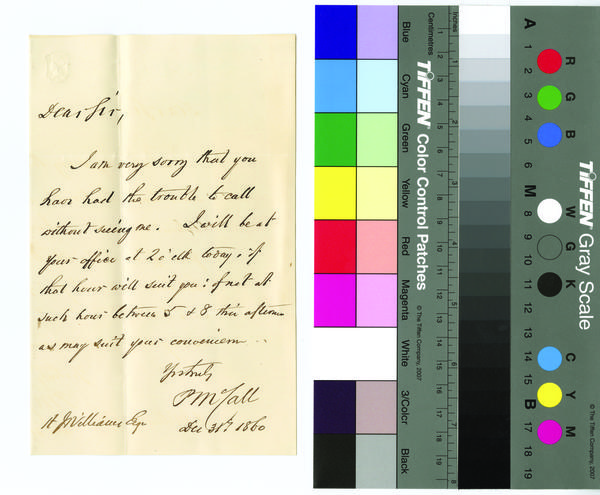 Dear Sir,
I am very sorry that you
have had the trouble to call
without seeing me. I will be at
your office at 2 o'clk today: if
that hour will suit you: if not at
such hour between 5 & 8 this afternoon
as may suit your convenience
Yrs truly
P McCall
Dec 31st 1860
H J Williams Esq
Blue
Cyan
Green
Yellow
Red
Magenta
White
3/Color
Black
Centimetres
Inches
TIFFEN Color Control Patches
© The Tiffen Company, 2007
1 2 3 4 5 6 7 8 9 10 11 12 13 14 15 16 17 18 19
1 2 3 4 5 6 7 8
A 1 2 3 4 5 6 M 8 9 10 11 12 13 14 15 B 17 18 19
R G B
W G K
C Y M
TIFFEN Gray Scale
© The Tiffen Company, 2007